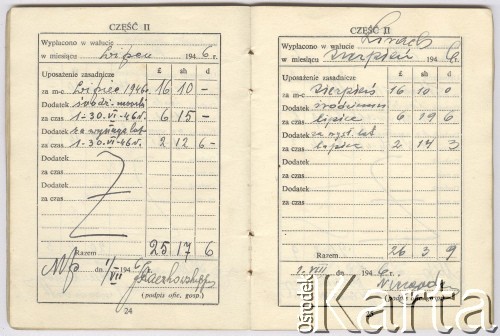 CZĘŚĆ II
Wypłacono w walucie
w miesiącu Lipiec 1946 r.
Uposażenie zasadnicze £ sh d
za m-c Lipiec 1946r. 16 10 —
Dodatek
za czas 1-30.VI-46r. 6 15 —
Dodatek za wysługę lat
za czas 1-30.VI-46r. 2 12 6
Dodatek
za czas
Dodatek
za czas
Razem 25 17 6
dn. 1/VII 1946 r.
(podpis ofic. gosp.)
24
CZĘŚĆ II
Wypłacono w walucie
w miesiącu Sierpień 1946 r.
Uposażenie zasadnicze £ sh d
za m-c Sierpień 16 10 0
Dodatek
za czas lipiec 6 19 6
Dodatek
za czas lipiec 2 14 3
Dodatek
za czas
Dodatek
za czas
Razem 26 3 9
1.VIII dn. 1946 r.
25
Ośrodek
Karta